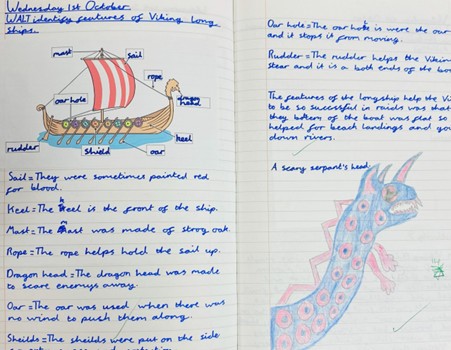 Wednesday 1st October
WALT identify features of Viking Long
ships.
mast
sail
rope
oar hole
dragon
head
keel
rudder
shield
oar
Sail = They were sometimes painted red
for blood.
Keel = The keel is the front of the ship.
Mast = The mast was made of strog oak.
Rope = The rope helps hold the sail up.
Dragon head = The dragon head was made
to scare enemys away.
Oar = The oar was used when there was
no wind to push them along.
Sheilds = The sheilds were put on the side
Oar hole = The oar hole is were the oar
and it stops it from moving.
Rudder = The rudder helps the Viking
stear and it is a both ends of the
The features of the longship help the
to be so successful in raids was that
they bottom of the boat was flat so
helped for beach landings and
down rivers.
A scary serpant's head.